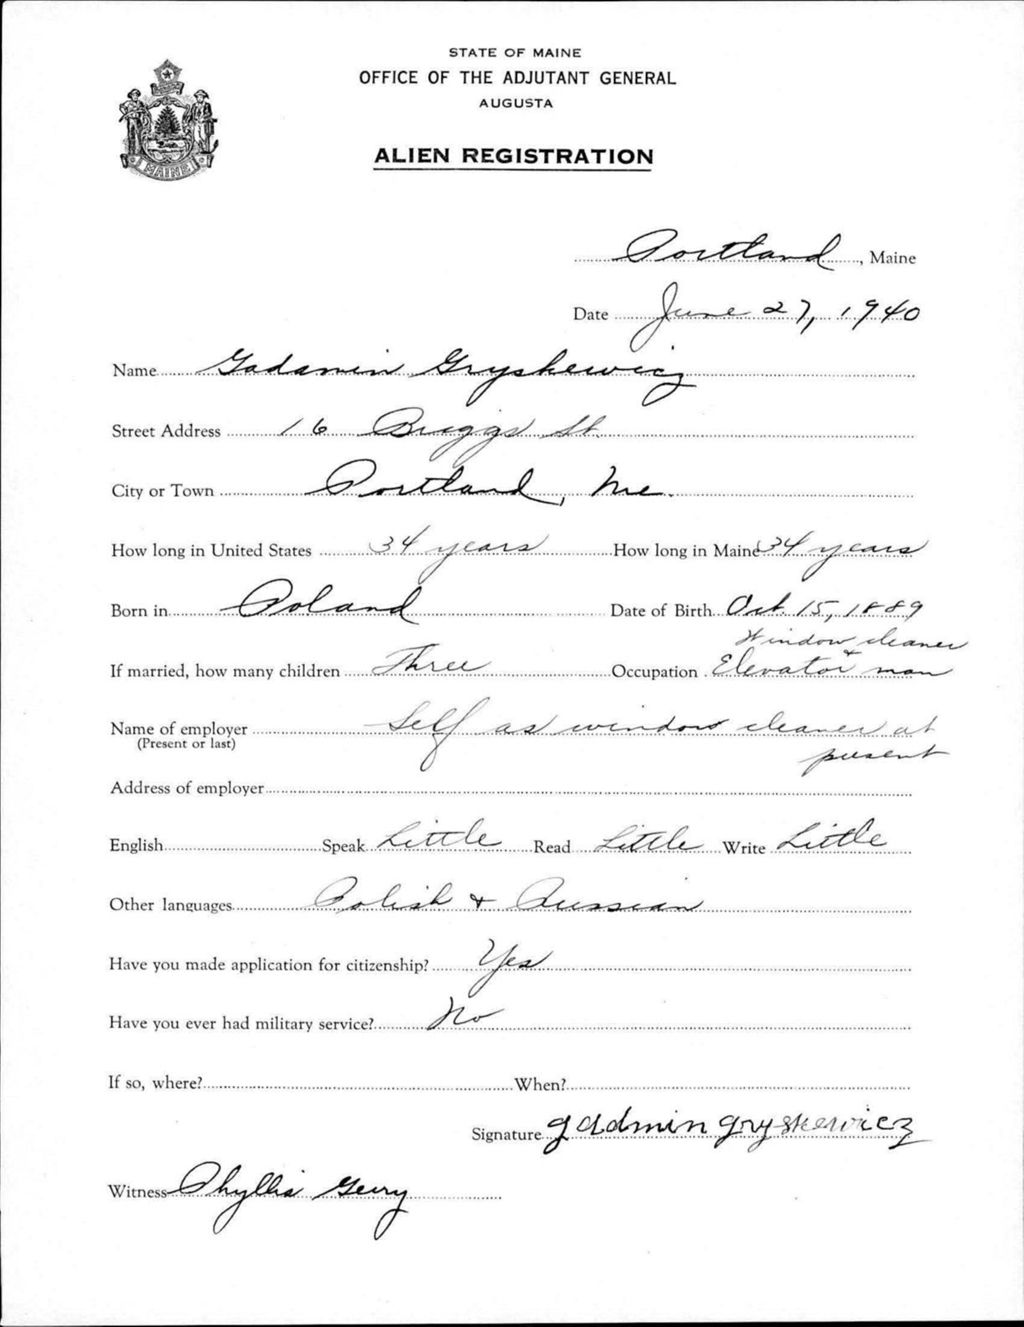 STATE OF MAINE
OFFICE OF THE ADJUTANT GENERAL
AUGUSTA
ALIEN REGISTRATION
MAINE
Portland, Maine
Date June 27, 1940
Name Gadamin Gryskewicz
Street Address 16 Briggs St.
City or Town Portland, Me.
How long in United States 34 years How long in Maine 34 years
Born in Poland Date of Birth Oct. 15, 1889
Window cleaner
If married, how many children Three Occupation + Elevator man
Name of employer Self as window cleaner at
(Present or last) present
Address of employer
English Speak Little Read Little Write Little
Other languages Polish + Russian
Have you made application for citizenship? Yes
Have you ever had military service? No
If so, where? When?
Signature gadmin gryskewicz
Witness Phyllis Gerry